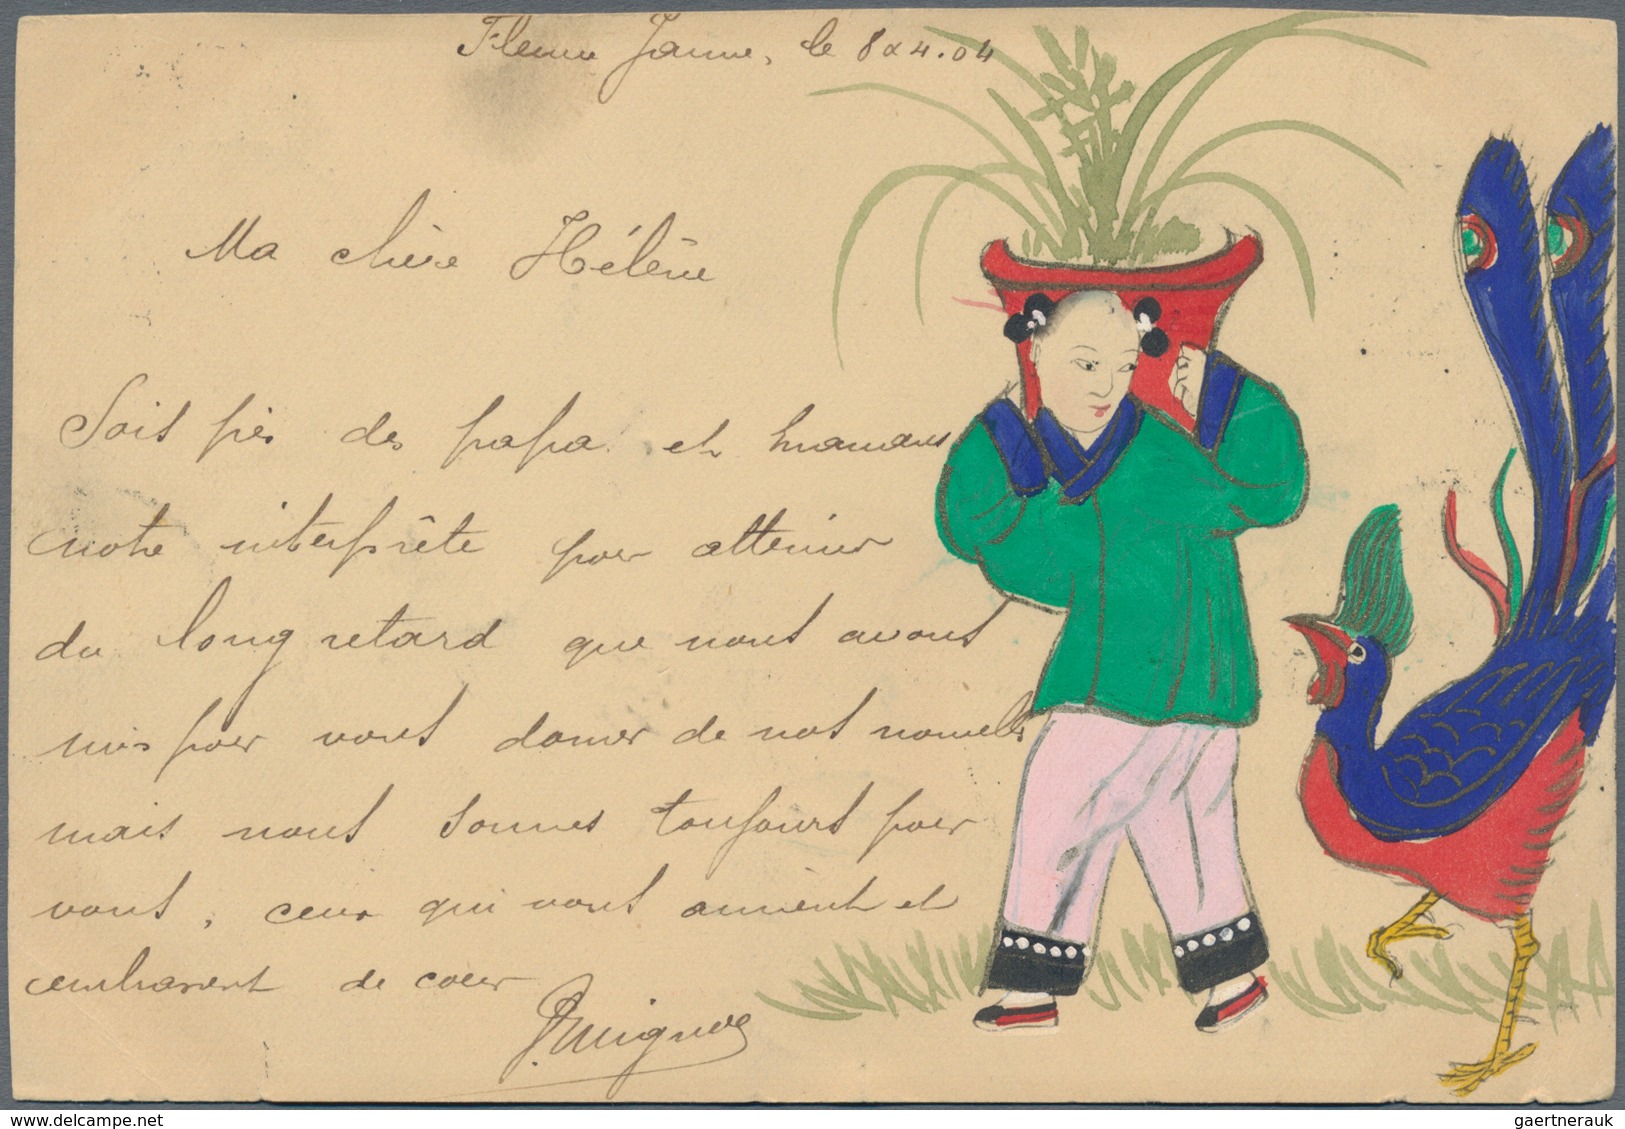 Fleuve Jaune, le 8 4.04
Ma chère Hélène
Sois près de papa et maman
notre interprète pour atténuer
du long retard que nous avons
mis pour vous donner de nos nouvelles
mais nous sommes toujours pour
vous, ceux qui vous aiment et
embrassent de coeur
gaertnerauk / delcampe.net